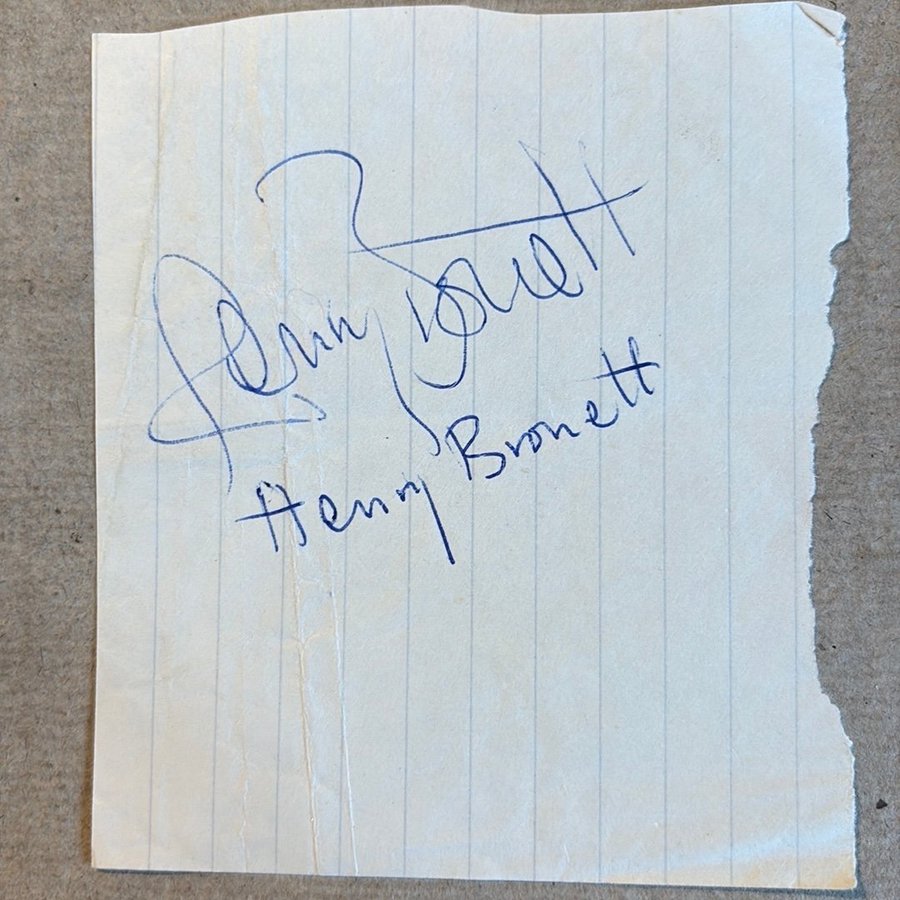 Henry Bronett
Henry Bronett